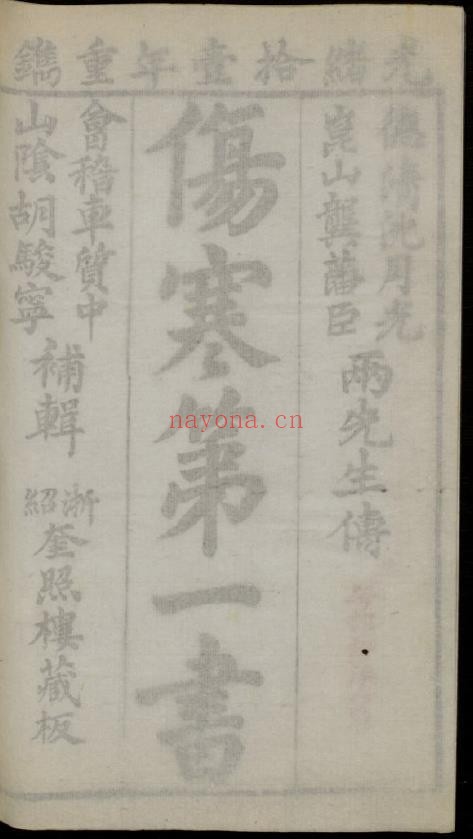 光緒拾壹年重鐫
德清沈月光
崑山龔藩臣
兩先生傳
傷寒第一書
會稽車質中
山陰胡駿寧
補輯
浙紹
奎照樓藏板
nayona.cn